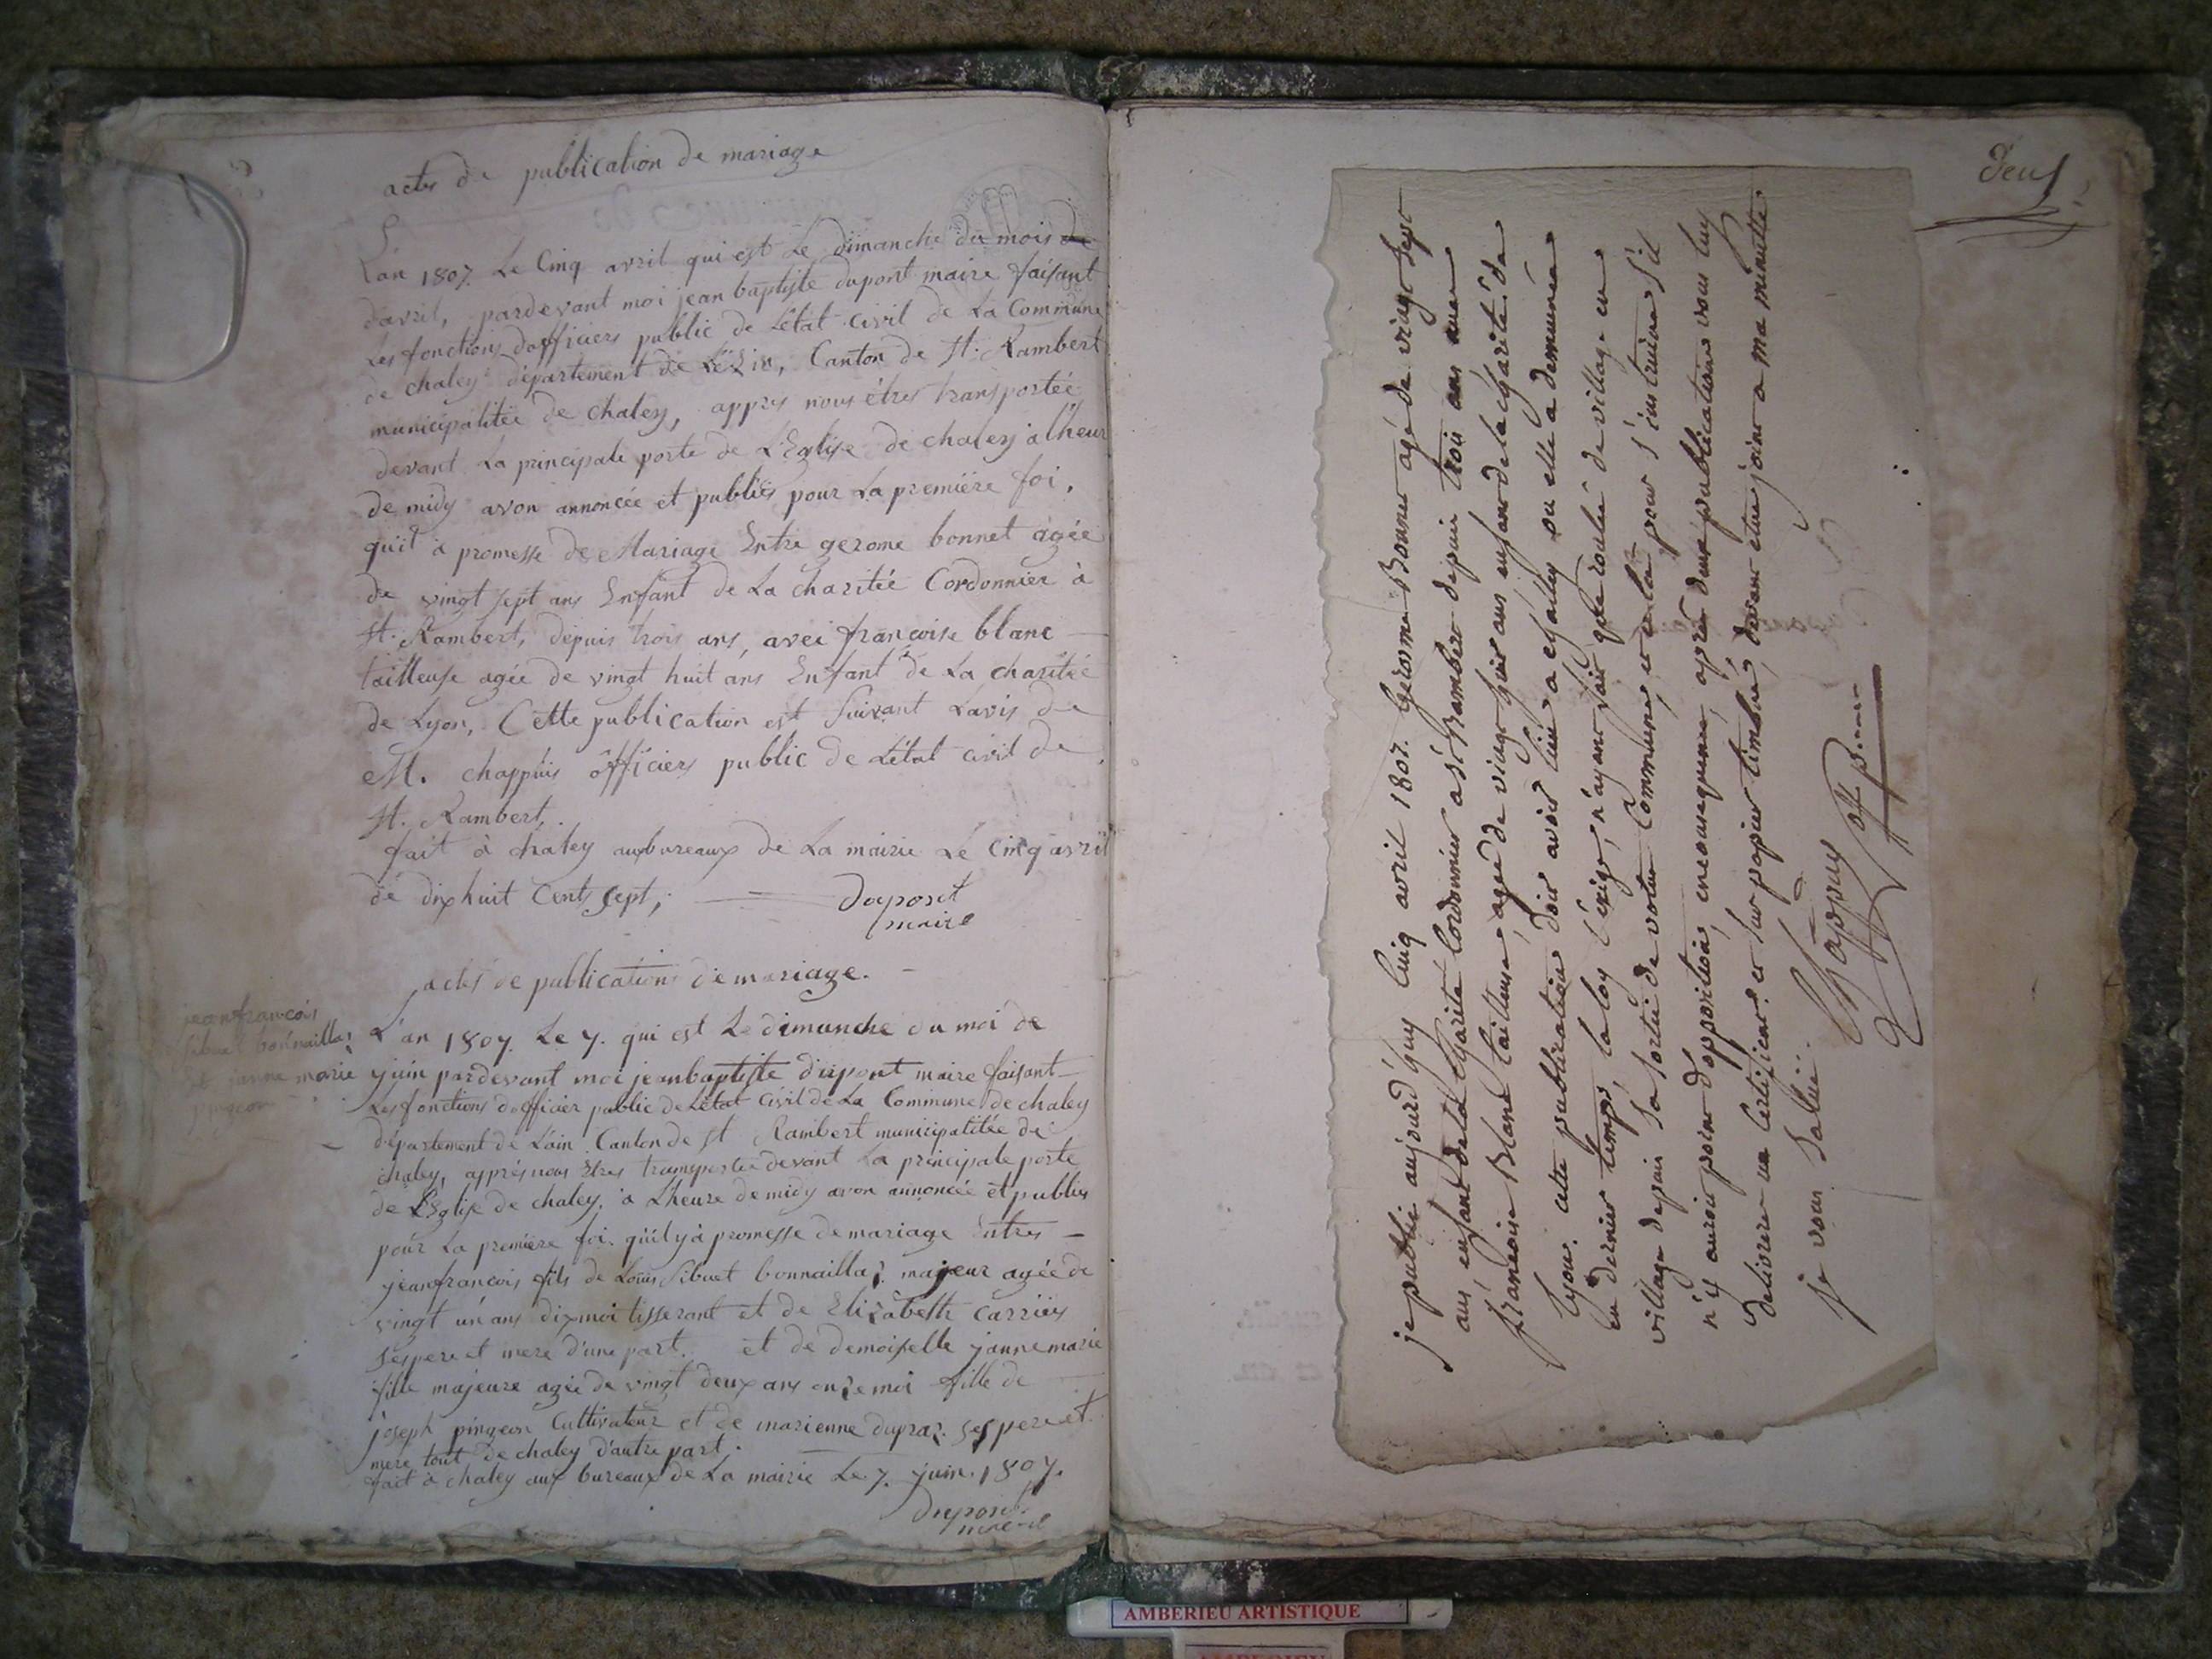 actes de publication de mariage
L'an 1807. Le Cinq avril qui est Le dimanche du mois de
d'avril, pardevant moi jean baptiste dupont maire faisant
Les fonctions d'officiers public de L'état civil de La Commune
de chaley département de L'Ein, Canton de St. Rambert
municipalitée de chaley, appres nous étres transportée
devant La principale porte de L'Eglise de chaley a lheur
de midy avon annoncée et publiés pour La première foi,
quit à promesse de Mariage Entre gerome bonnet agée
de vingt sept ans Enfant de La charitée Cordonnier à
St. Rambert, depuis trois ans, avec françoise blanc
tailleuse agée de vingt huit ans Enfant de La charitée
de Lyon, Cette publication est suivant Lavis de
M. chappuis officiers public de L'état civil de
St. Rambert.
fait à chaley aux bureaux de La mairie Le Cinq avril
de dix huit Cents sept;
Dupont
maire
actes de publications de mariage.
jeanfrancois
sibuet bonnaillaz
et janne marie
pingeon
L'an 1807. Le 7. qui est Le dimanche du moi de
juin pardevant moi jeanbaptiste dupont maire faisant
Les fonctions d'officier public de L'état civil de La Commune de chaley
département de L'ain Canton de St Rambert municipalitée de
chaley, apprés nous Etres transportée devant La principale porte
de L'Eglise de chaley. à L'heure de midy avon annoncée et publiés
pour La premiere foi. qu'il y à promesse de mariage Entres
jeanfrancois fils de Louis Sibuet bonnaillaz. majeur agée de
vingt un ans dix moi tisserant et de Elizabeth Carriers
ses pere et mere d'une part. et de demoiselle janne marie
fille majeure agée de vingt deux ans onze moi fille de
joseph pingeon Cultivateur et de marienne dupraz. ses pere et
mere tout de chaley d'autre part.
fait à chaley aux bureaux de La mairie Le 7. juin. 1807.
Dupont
maire
Deux
je publie aujourd'huy Cinq avril 1807. Gerosme Bonnet agé de vingt sept
ans enfant de la Charité Cordonnier a St Rambert depuis trois ans avec
francoise Blanc tailleuse, agée de vingt huit ans enfant de la charité de
Lyon. cette publication doit avoir lieu a chaley ou elle a demeurée
en dernier temps, la loy l'exige, n'ayant fait que roulé de village en
village depuis sa sortie de votre Commune, et cela pour s'instruire s'il
n'y auroit point d'opposition, en consequence, après deux publications vous luy
delivrerez un Certificat et sur papier timbré, devant etre joint a ma minutte
je vous salue.
Chappuis off. p.
AMBERIEU ARTISTIQUE
AMBERIEU